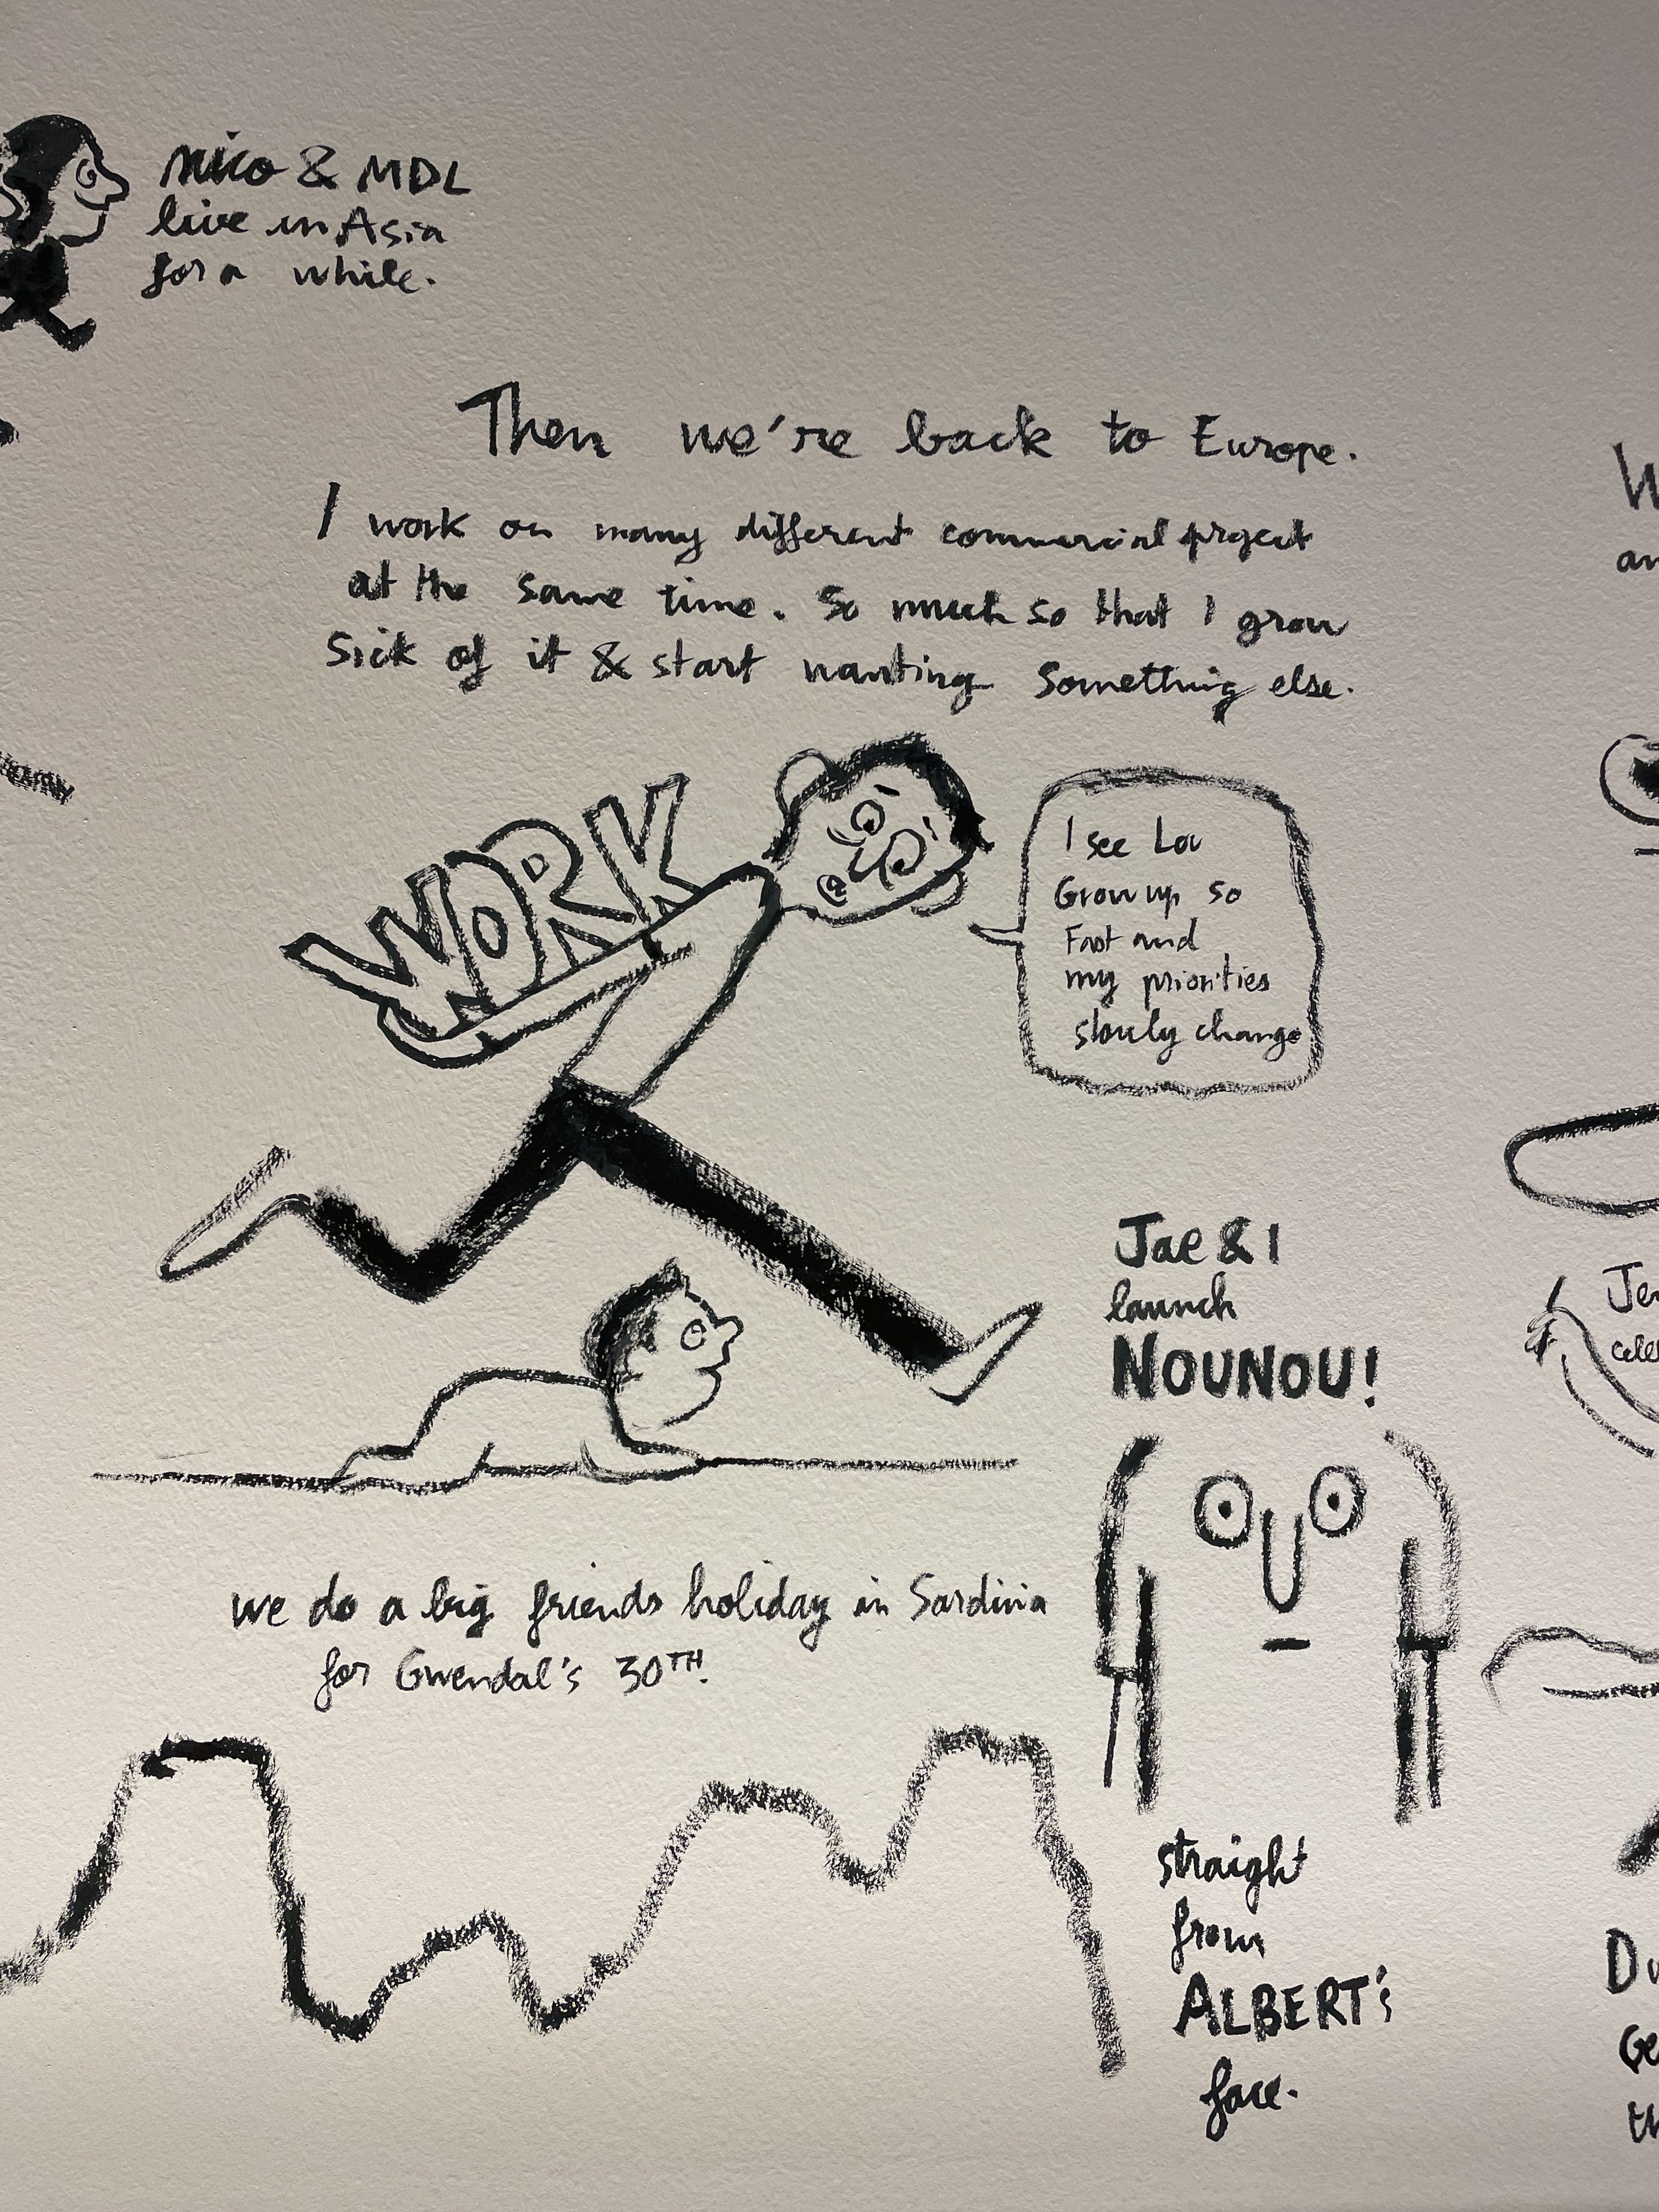 Nico & MDL
live in Asia
for a while.
Then we're back to Europe.
I work on many different commercial project
at the same time. So much so that I grow
sick of it & start wanting something else.
WORK
I see Lou
Grow up so
Fast and
my priorities
slowly change
Jae & I
launch
NOUNOU!
we do a big friends holiday in Sardinia
for Gwendal's 30TH.
straight
from
ALBERT's
face.